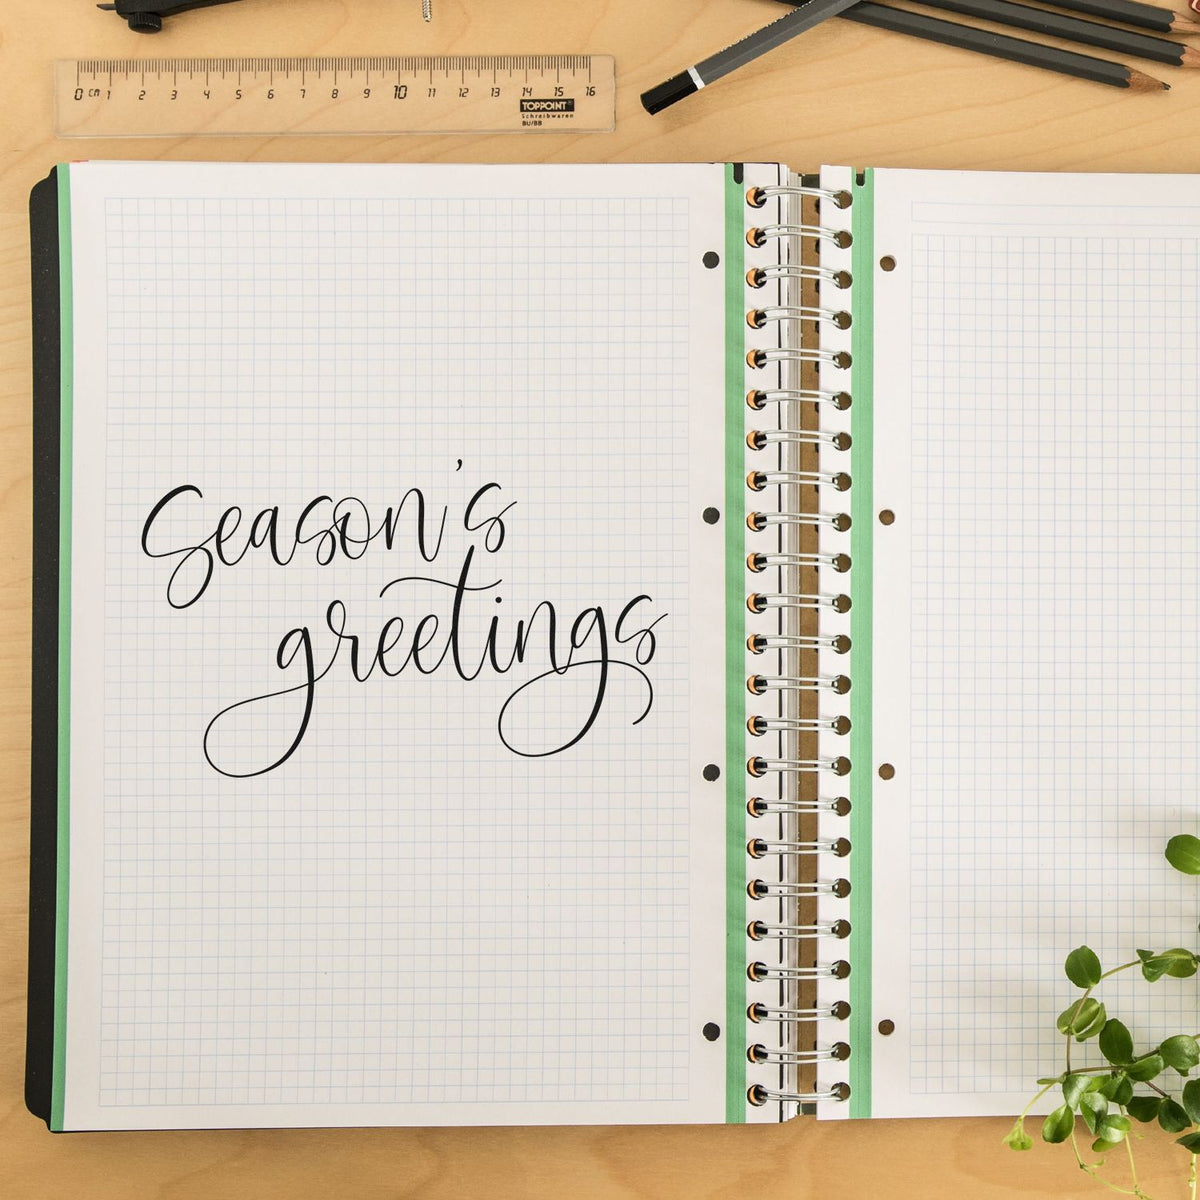 0 cm 1 2 3 4 5 6 7 8 9 10 11 12 13 14 15 16
TOPPOINT
Schreibwaren
BU/BB
season's
greetings